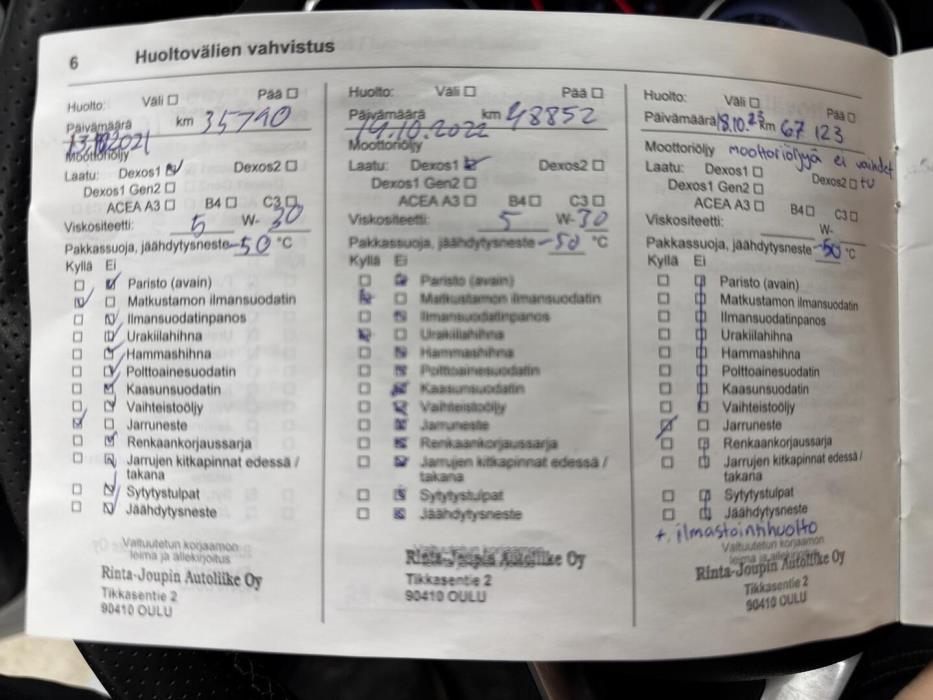 6 Huoltovälien vahvistus
Huolto: Väli ☐ Pää ☐
Päivämäärä km 35790
13.10.2021
Moottoriöljy
Laatu: Dexos1 ☑ Dexos2 ☐
Dexos1 Gen2 ☐
ACEA A3 ☐ B4 ☐ C3 ☐
Viskositeetti: 5 W- 30
Pakkassuoja, jäähdytysneste -50 °C
Kyllä Ei
☐ ☑ Paristo (avain)
☑ ☐ Matkustamon ilmansuodatin
☐ ☑ Ilmansuodatinpanos
☐ ☑ Urakiilahihna
☐ ☑ Hammashihna
☐ ☑ Polttoainesuodatin
☐ ☑ Kaasunsuodatin
☐ ☑ Vaihteistoöljy
☑ ☐ Jarruneste
☐ ☑ Renkaankorjaussarja
☐ ☑ Jarrujen kitkapinnat edessä /
takana
☐ ☑ Sytytystulpat
☐ ☑ Jäähdytysneste
Valtuutetun korjaamon
leima ja allekirjoitus
Rinta-Joupin Autoliike Oy
Tikkasentie 2
90410 OULU
Huolto: Väli ☐ Pää ☐
Päivämäärä km 48852
14.10.2022
Moottoriöljy
Laatu: Dexos1 ☑ Dexos2 ☐
Dexos1 Gen2 ☐
ACEA A3 ☐ B4 ☐ C3 ☐
Viskositeetti: 5 W- 30
Pakkassuoja, jäähdytysneste -50 °C
Kyllä Ei
☐ ☑ Paristo (avain)
☑ ☐ Matkustamon ilmansuodatin
☐ ☑ Ilmansuodatinpanos
☑ ☐ Urakiilahihna
☐ ☑ Hammashihna
☐ ☑ Polttoainesuodatin
☐ ☑ Kaasunsuodatin
☐ ☑ Vaihteistoöljy
☐ ☑ Jarruneste
☐ ☑ Renkaankorjaussarja
☐ ☑ Jarrujen kitkapinnat edessä /
takana
☐ ☑ Sytytystulpat
☐ ☑ Jäähdytysneste
Rinta-Joupin Autoliike Oy
Tikkasentie 2
90410 OULU
Huolto: Väli ☐ Pää ☐
Päivämäärä 18.10.23 km 67 123
Moottoriöljy moottoriöljyä ei vaihdet
Laatu: Dexos1 ☐ Dexos2 ☐ tu
Dexos1 Gen2 ☐
ACEA A3 ☐ B4 ☐ C3 ☐
Viskositeetti: W-
Pakkassuoja, jäähdytysneste -50 °C
Kyllä Ei
☐ ☑ Paristo (avain)
☐ ☑ Matkustamon ilmansuodatin
☐ ☑ Ilmansuodatinpanos
☐ ☑ Urakiilahihna
☐ ☑ Hammashihna
☐ ☑ Polttoainesuodatin
☐ ☑ Kaasunsuodatin
☐ ☑ Vaihteistoöljy
☑ ☐ Jarruneste
☐ ☑ Renkaankorjaussarja
☐ ☑ Jarrujen kitkapinnat edessä /
takana
☐ ☑ Sytytystulpat
☐ ☑ Jäähdytysneste
+ ilmastointihuolto
Valtuutetun korjaamon
leima ja allekirjoitus
Rinta-Joupin Autoliike Oy
Tikkasentie 2
90410 OULU